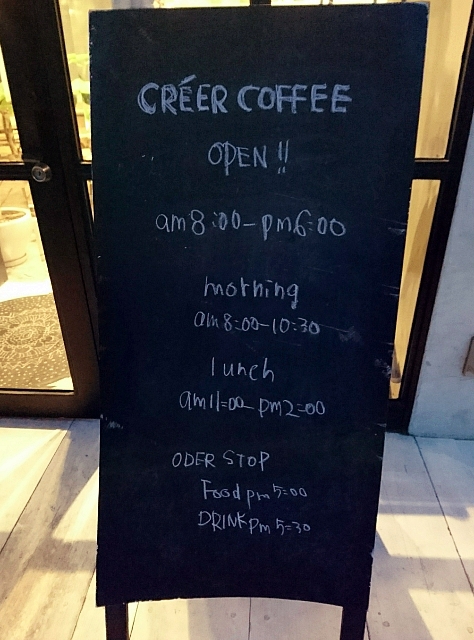 CRÉER COFFEE
OPEN!!
am8:00-pm6:00
morning
am8:00-10:30
lunch
am11:00-pm2:00
ODER STOP
Food pm5:00
DRINK pm5:30